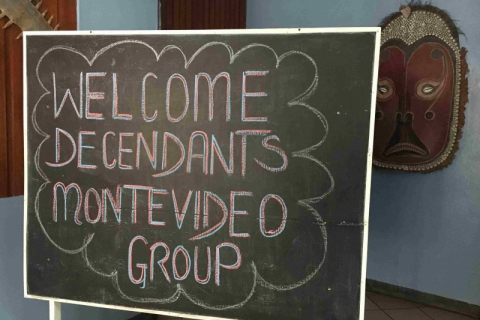 WELCOME
DECENDANTS
MONTEVIDEO
GROUP